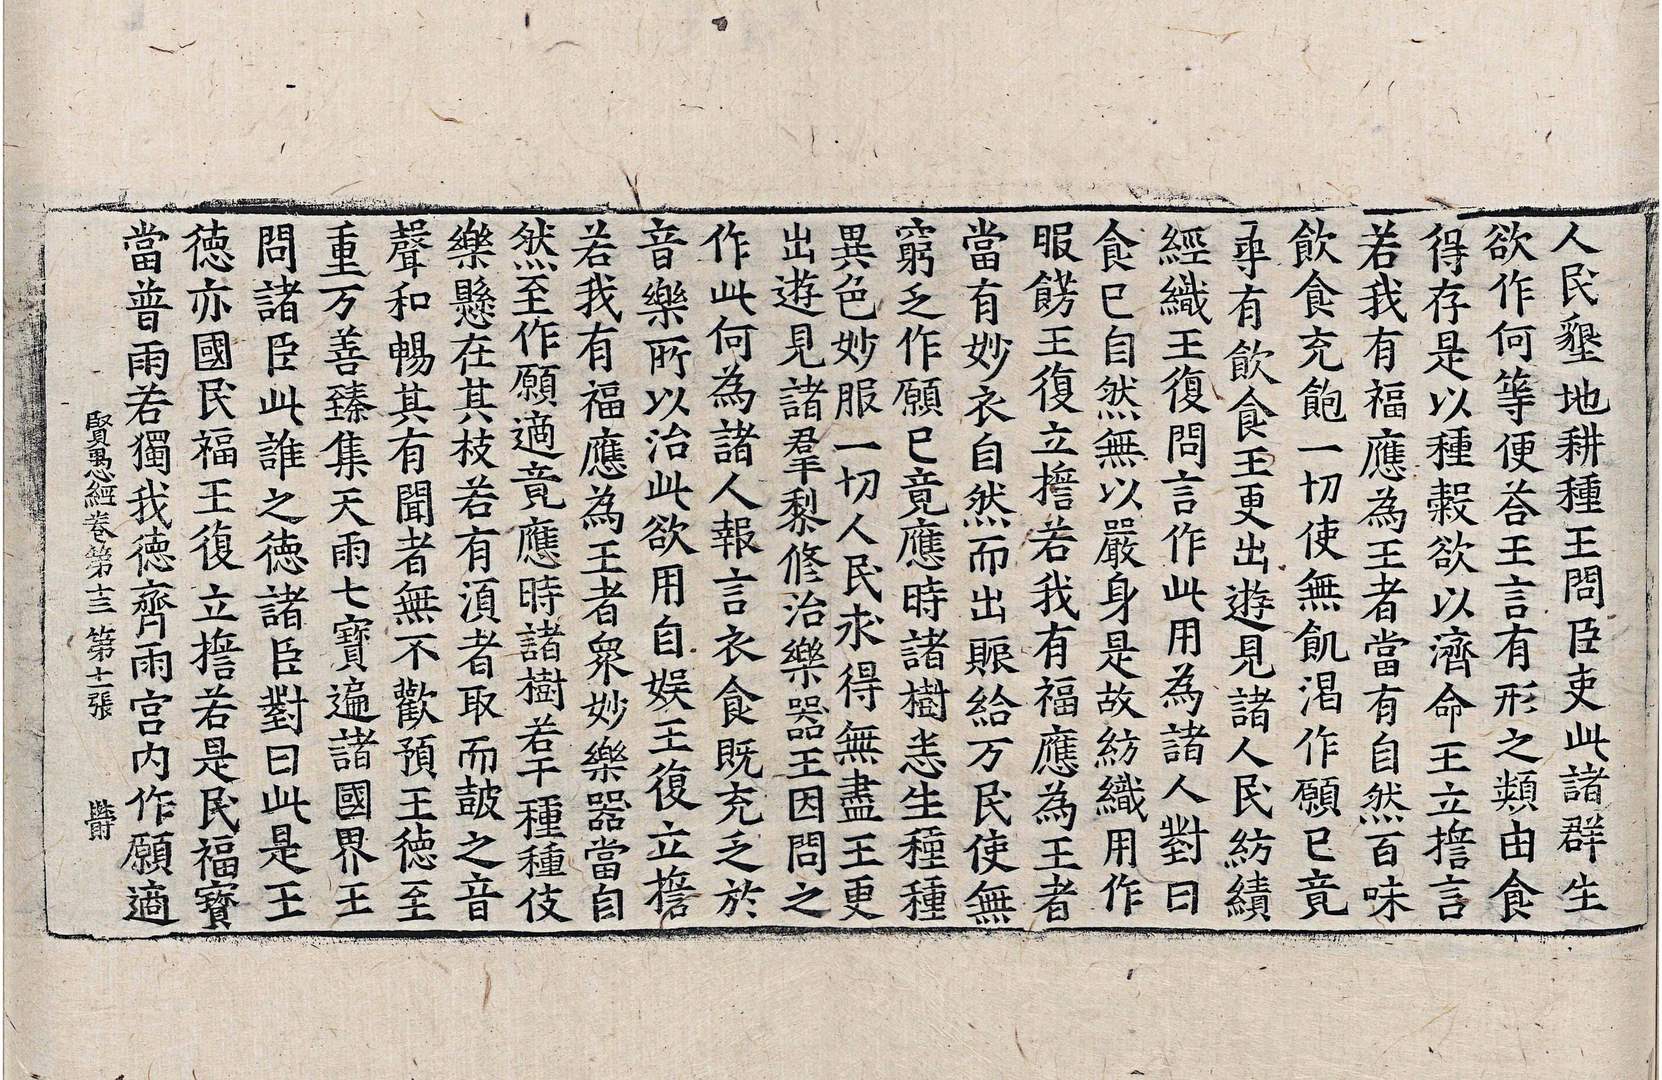 人民墾地耕種王問臣吏此諸群生
欲作何等便荅王言有形之類由食
得存是以種榖欲以濟命王立擔言
若我有福應為王者當有自然百味
飲食充飽一切使無飢渴作願已竟
尋有飲食王更出遊見諸人民紡績
經織王復問言作此用為諸人對曰
食已自然無以嚴身是故紡織用作
服餝王復立擔若我有福應為王者
當有妙衣自然而出賑給万民使無
窮乏作願已竟應時諸樹恙生種種
異色妙服一切人民求得無盡王更
出遊見諸群黎修治樂器王因問之
作此何為諸人報言衣食既充乏於
音樂所以治此欲用自娛王復立擔
若我有福應為王者眾妙樂器當自
然至作願適竟應時諸樹若干種種伎
樂懸在其枝若有湏者取而皷之音
聲和暢其有聞者無不歡預王徳至
重万善臻集天雨七寶遍諸國界王
問諸臣此誰之徳諸臣對曰此是王
徳亦國民福王復立擔若是民福寶
當普雨若獨我徳齊雨宮内作願適
賢愚經卷第十三 第十二張